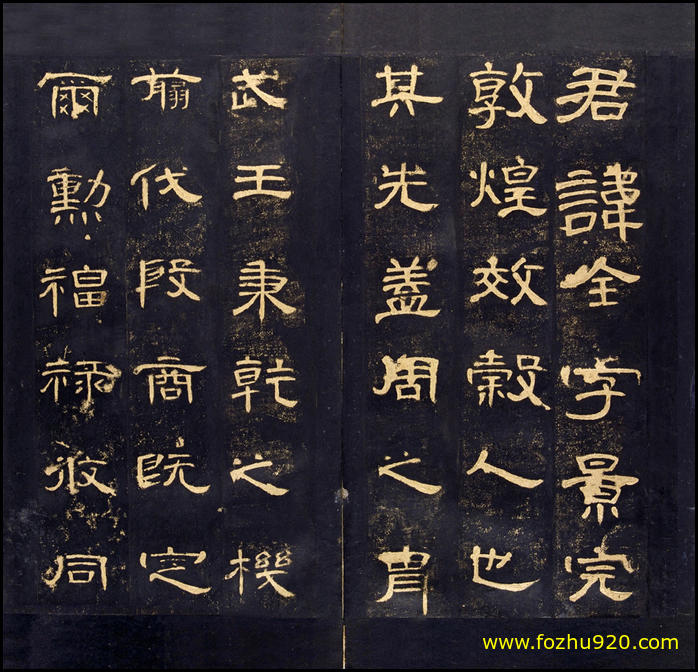 君諱全字景完
敦煌效穀人也
其先蓋周之胄
武王秉乾之機
翦伐殷商既定
爾勳福祿攸同
www.fozhu920.com